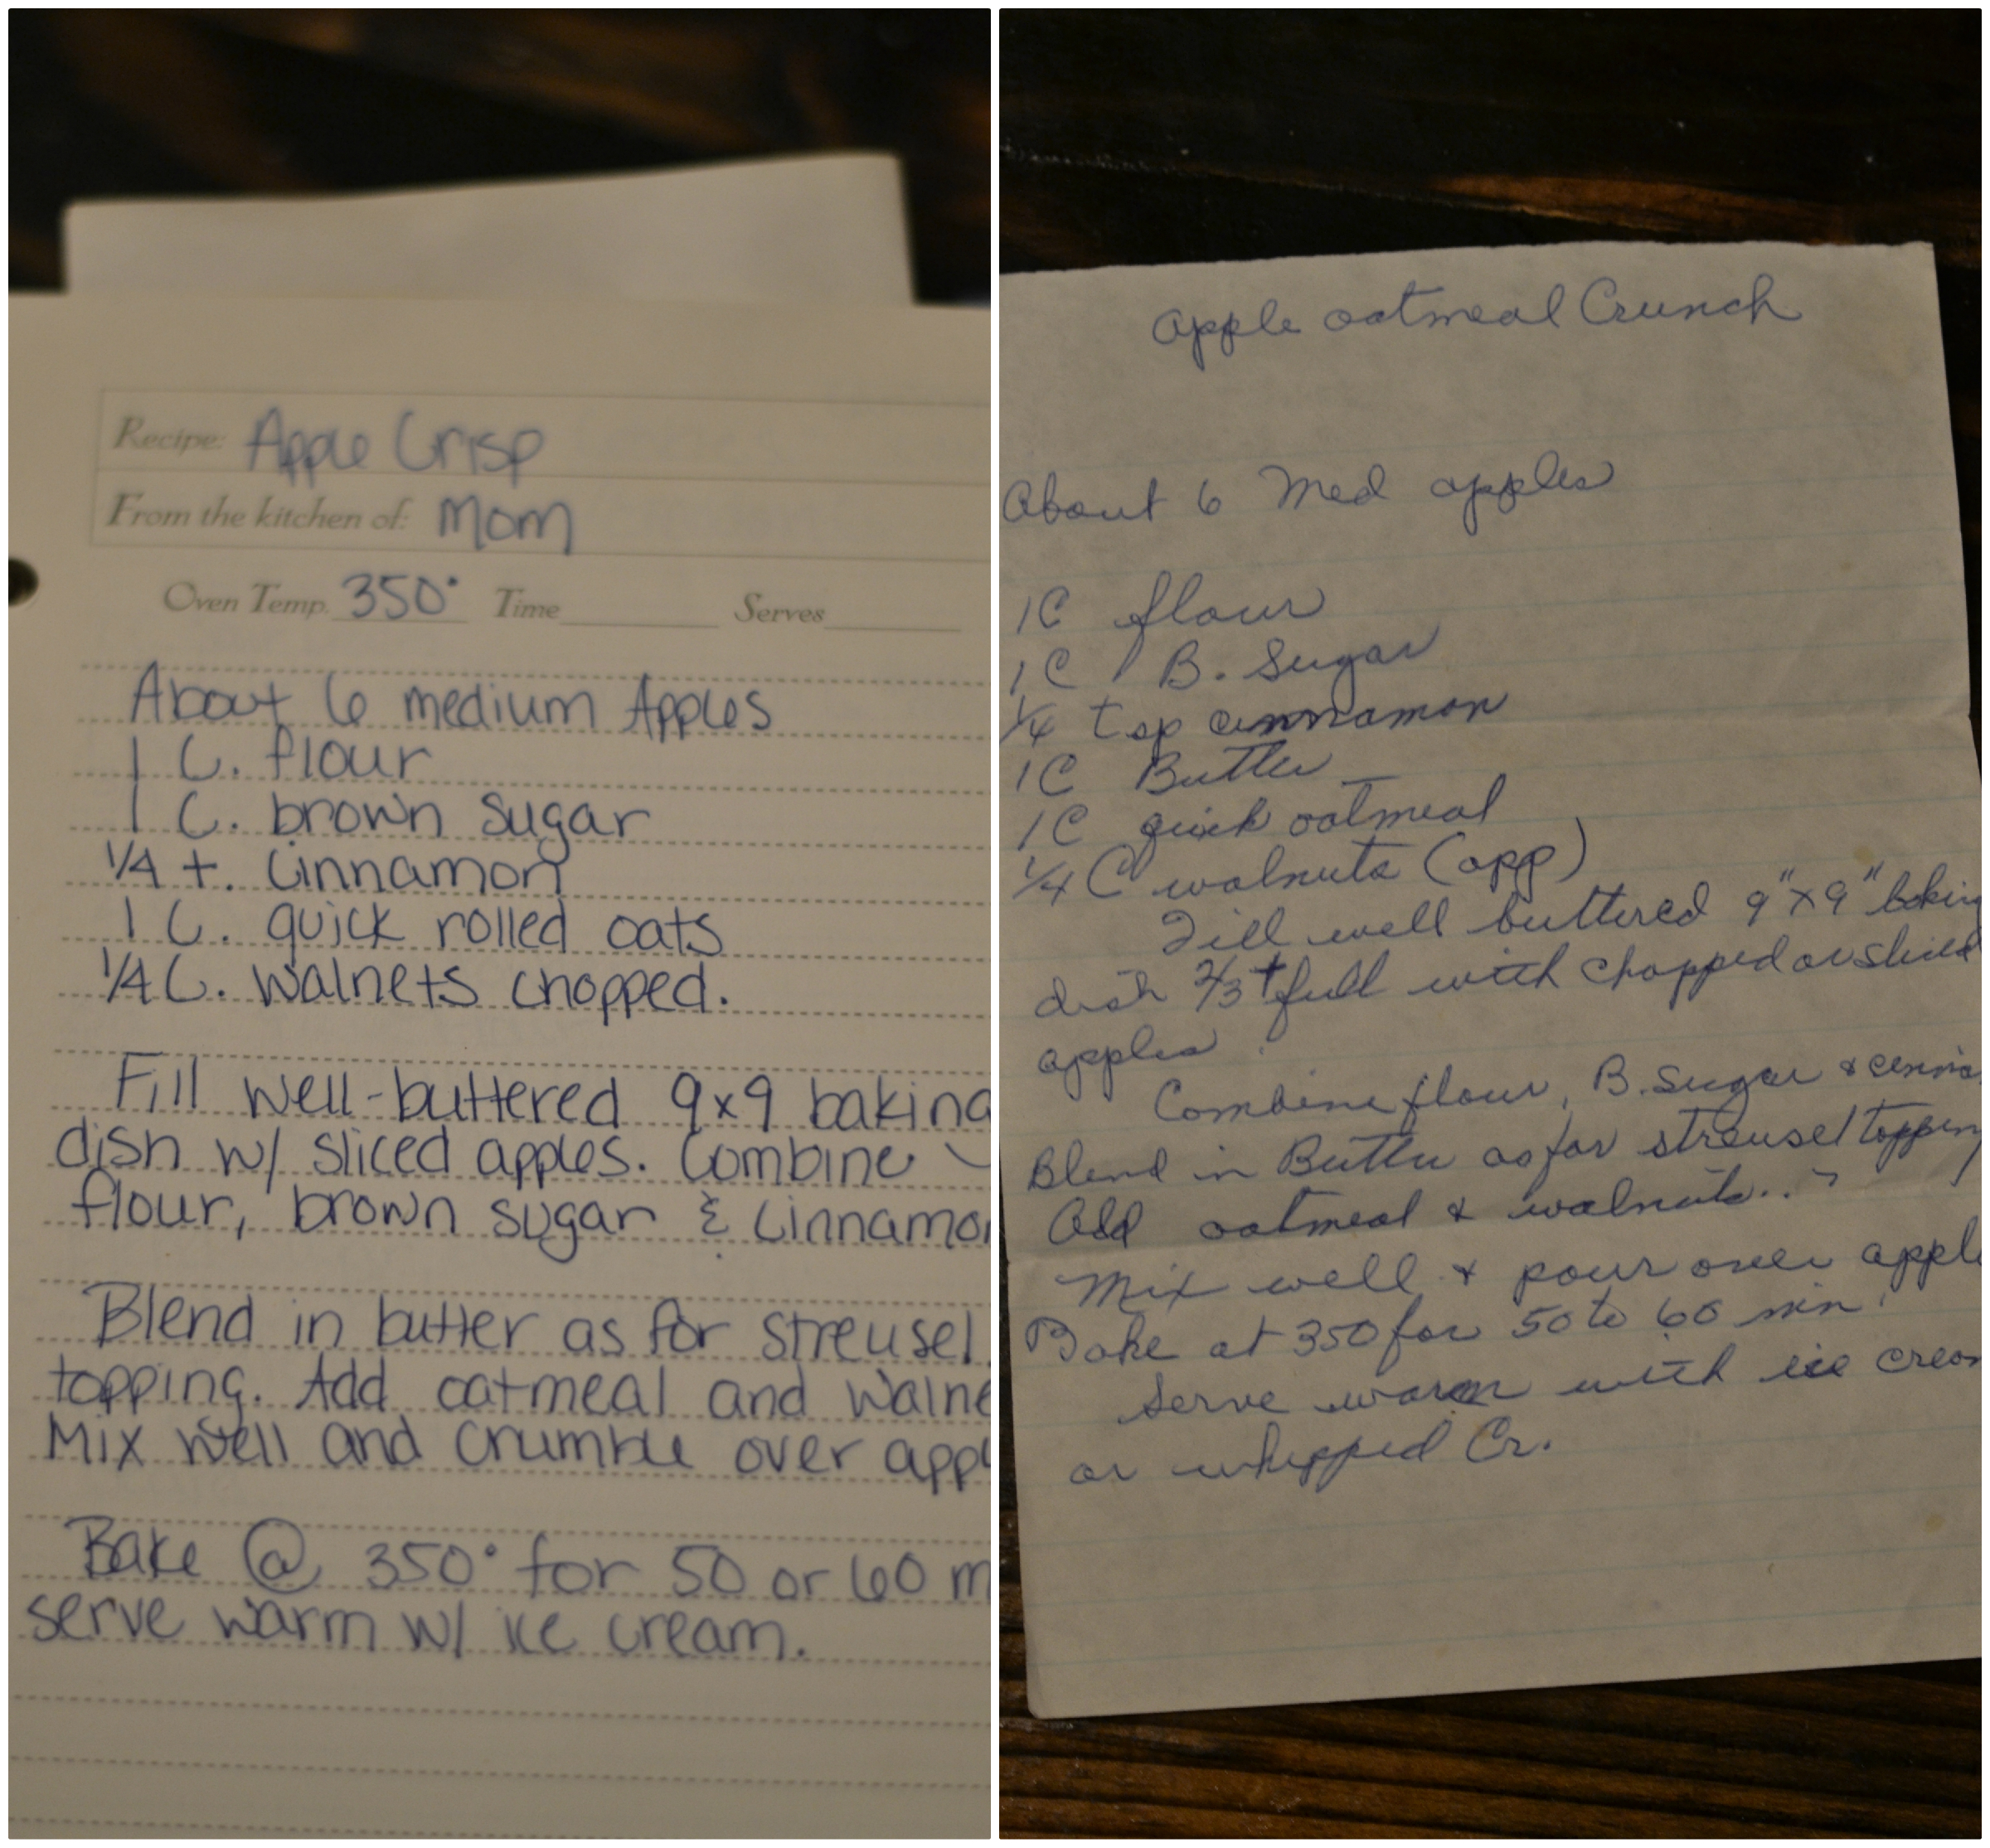 Recipe: Apple Crisp
From the kitchen of: Mom
Oven Temp. 350° Time Serves
About 6 medium Apples
1 C. flour
1 C. brown sugar
1/4 t. cinnamon
1 C. quick rolled oats
1/4 C. walnets chopped.
Fill well-buttered 9x9 baking
dish w/ sliced apples. Combine
flour, brown sugar & cinnamon
Blend in butter as for streusel
topping. Add oatmeal and walne
Mix well and crumble over appl
Bake @ 350° for 50 or 60 m
serve warm w/ ice cream.
Apple oatmeal Crunch
About 6 Med apples
1C flour
1C B. Sugar
1/4 tsp cinnamon
1C Butter
1C quick oatmeal
1/4 C walnuts (app)
Fill well buttered 9"x9" baking
dish 2/3+ full with chopped or sliced
apples.
Combine flour, B. Sugar & cinna
Blend in Butter as for streusel topping
Add oatmeal & walnuts..
Mix well & pour over apple
Bake at 350 for 50 to 60 min.
Serve warm with ice cream
or whipped Cr.